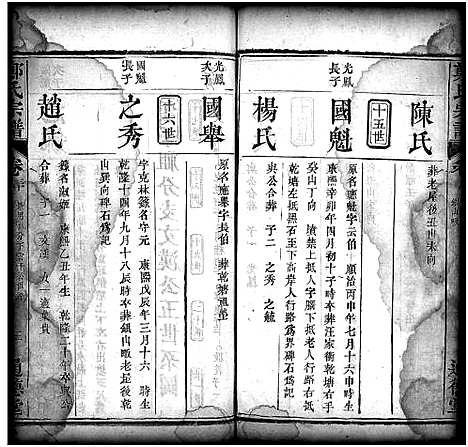 陳氏
葬老屋後丑世未向
十五世
光鳳長子
國魁
原名應魁字子伯
順治丙申年七月十六申時生
康熙辛卯年四月初十子時卒葬汪家衝乾
癸山丁向
墳禁上抵人字腦下抵老人行路右抵
乾塘左抵黑石至下高岸人行路為界碑石為記
楊氏
與公合葬
子二
之秀
之
光鳳次子
國舉
原名應舉字長伯
葬乾塘
十六世
國魁長子
之秀
字克林籤名守元
康熙戊辰年三月十六
時生
乾隆十四年九月十八辰時卒葬鎮山畈老屋後乾
山巽向碑石為記
趙氏
籤名淑姬
康熙乙丑年生
乾隆二十年卒與公
合葬
子一
文漢
女一
適葉貴
鄭氏宗譜
通德堂